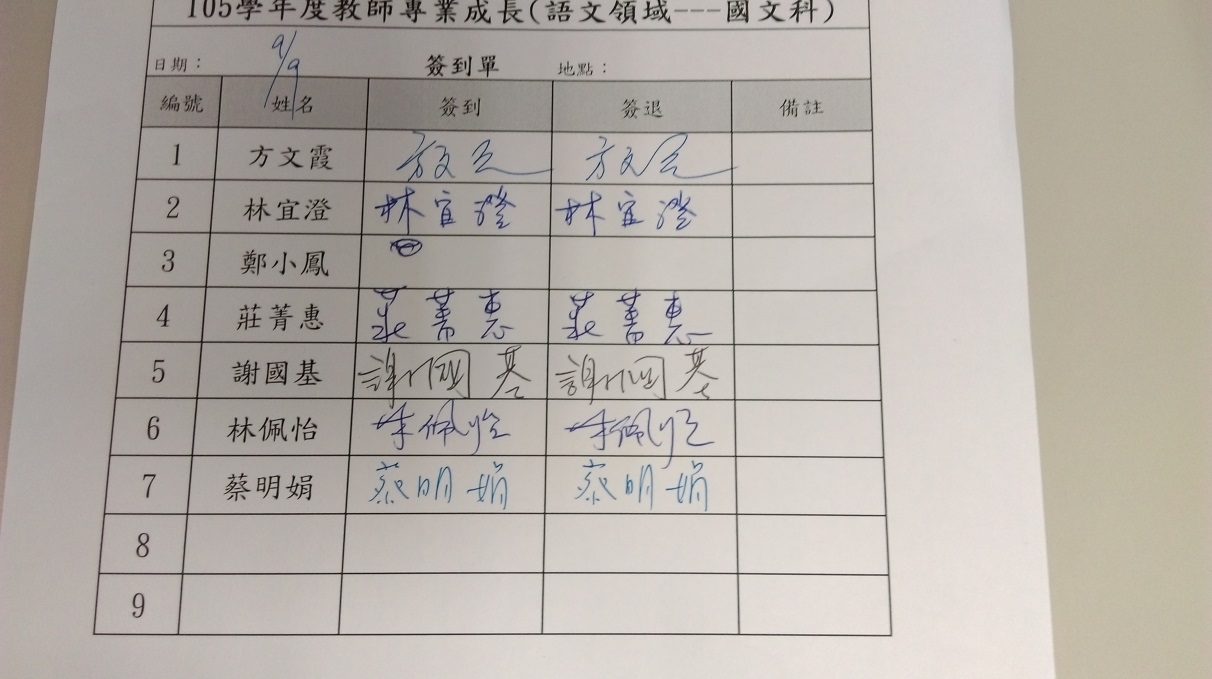 105學年度教師專業成長(語文領域---國文科)
日期： 9/9 簽到單 地點：
編號 姓名 簽到 簽退 備註
1 方文霞 方文霞 方文霞
2 林宜澄 林宜澄 林宜澄
3 鄭小鳳
4 莊菁惠 莊菁惠 莊菁惠
5 謝國基 謝國基 謝國基
6 林佩怡 林佩怡 林佩怡
7 蔡明娟 蔡明娟 蔡明娟
8
9